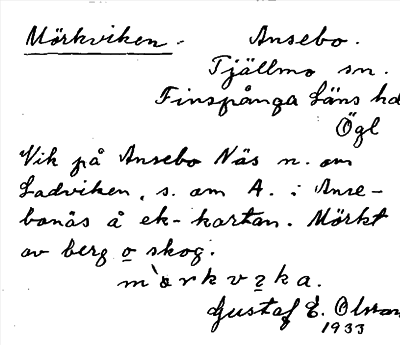 Mörkviken. Ansebo.
Tjällmo sn.
Finspånga Läns hd
Ögl
Vik på Ansebo Näs n. om
Ladviken, s. om A. i Anse-
bonäs å ek-kartan. Mörkt
av berg o skog.
Gustaf E. Olsson
1933